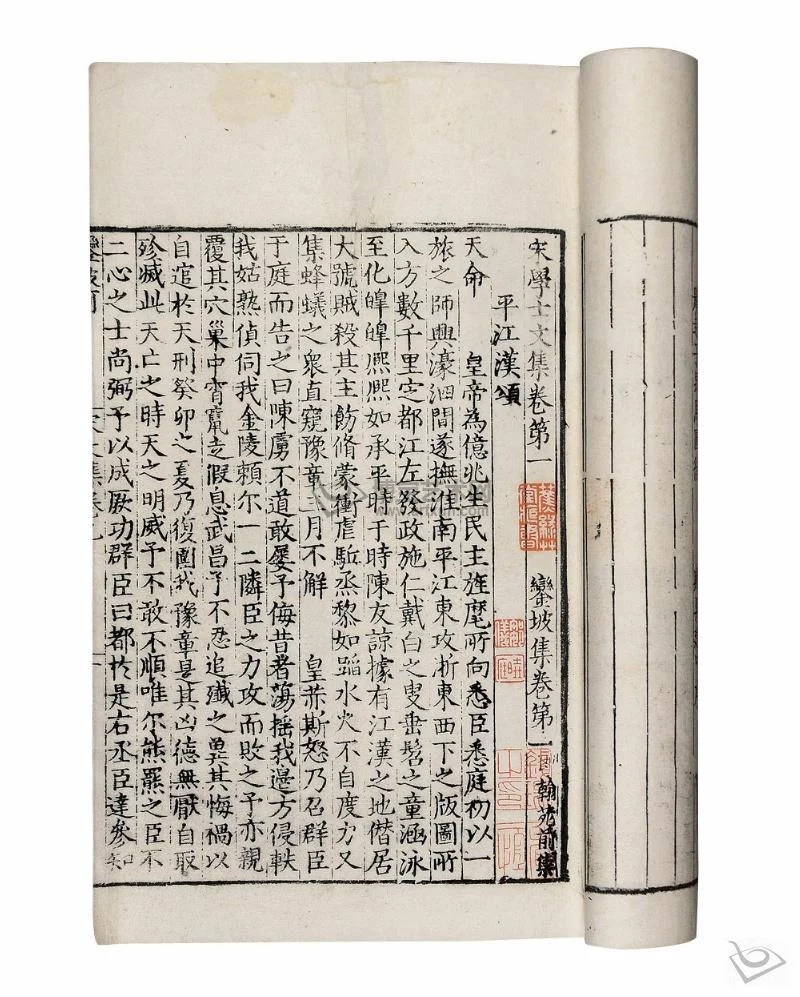 宋學士文集卷第一 鑾坡集卷第一 翰苑前集
平江漢頌
天命 皇帝為億兆生民主旌麾所向悉臣悉庭初以一
旅之師興濠泗間遂撫淮南平江東攻浙東西下之版圖所
入方數千里定都江左發政施仁戴白之叟垂髫之童涵泳
至化皥皥熈熈如承平時于時陳友諒據有江漢之地僭居
大號賊殺其主飭脩蒙衝虐駈烝黎如蹈水火不自度力又
集蜂蟻之衆直窺豫章三月不解 皇赫斯怒乃召群臣
于庭而告之曰陳虜不道敢屡予侮昔者蕩摇我邉方侵軼
我姑熟偵伺我金陵頼尔一二隣臣之力攻而敗之予亦親
覆其穴巢中宵竄走假息武昌予不忍追殲之兾其悔禍以
自逭於天刑癸卯之夏乃復圍我豫章是其凶德無厭自取
殄滅此天亡之時天之明威予不敢不順唯尔熊羆之臣不
二心之士尚弼予以成厥功群臣曰都於是右丞臣達參知